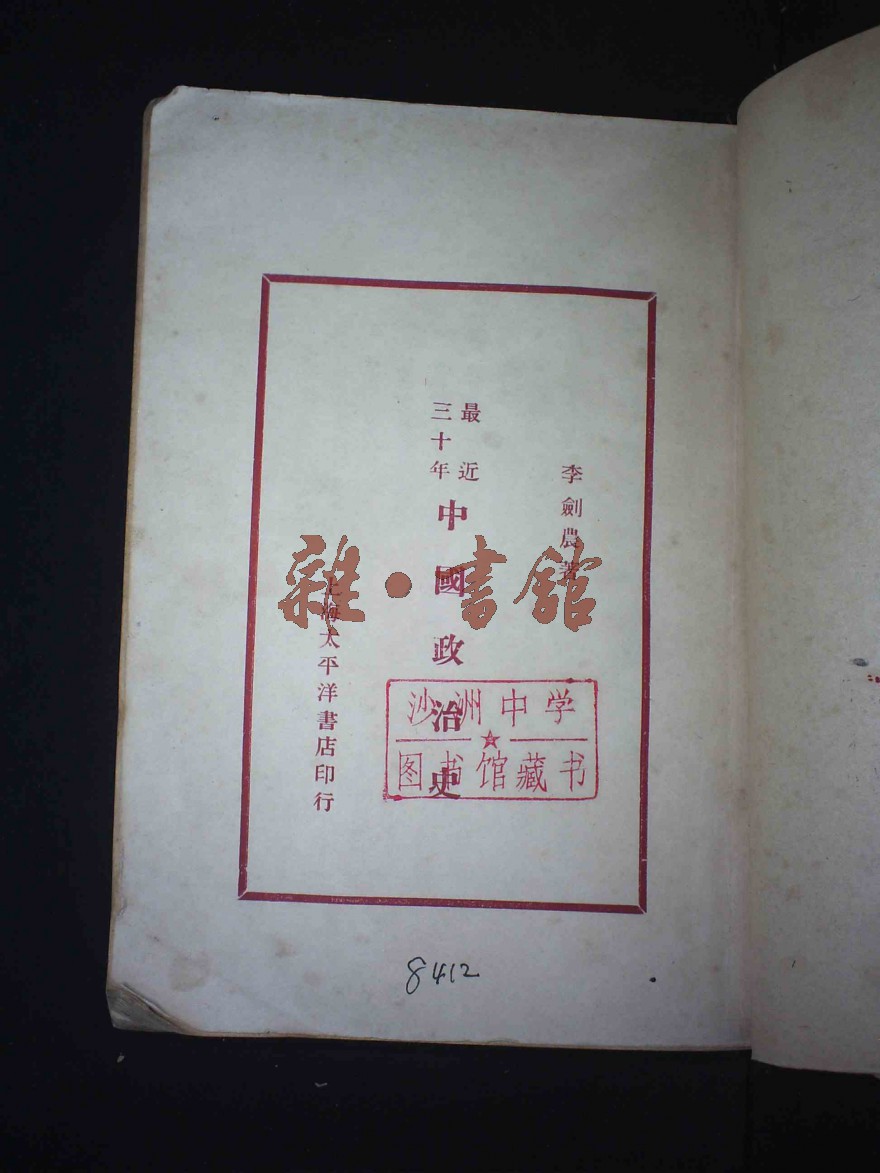 李劍農著
最近
三十年
中國政治史
上海太平洋書店印行
雜·書館
沙洲中学
图书馆藏书
8412